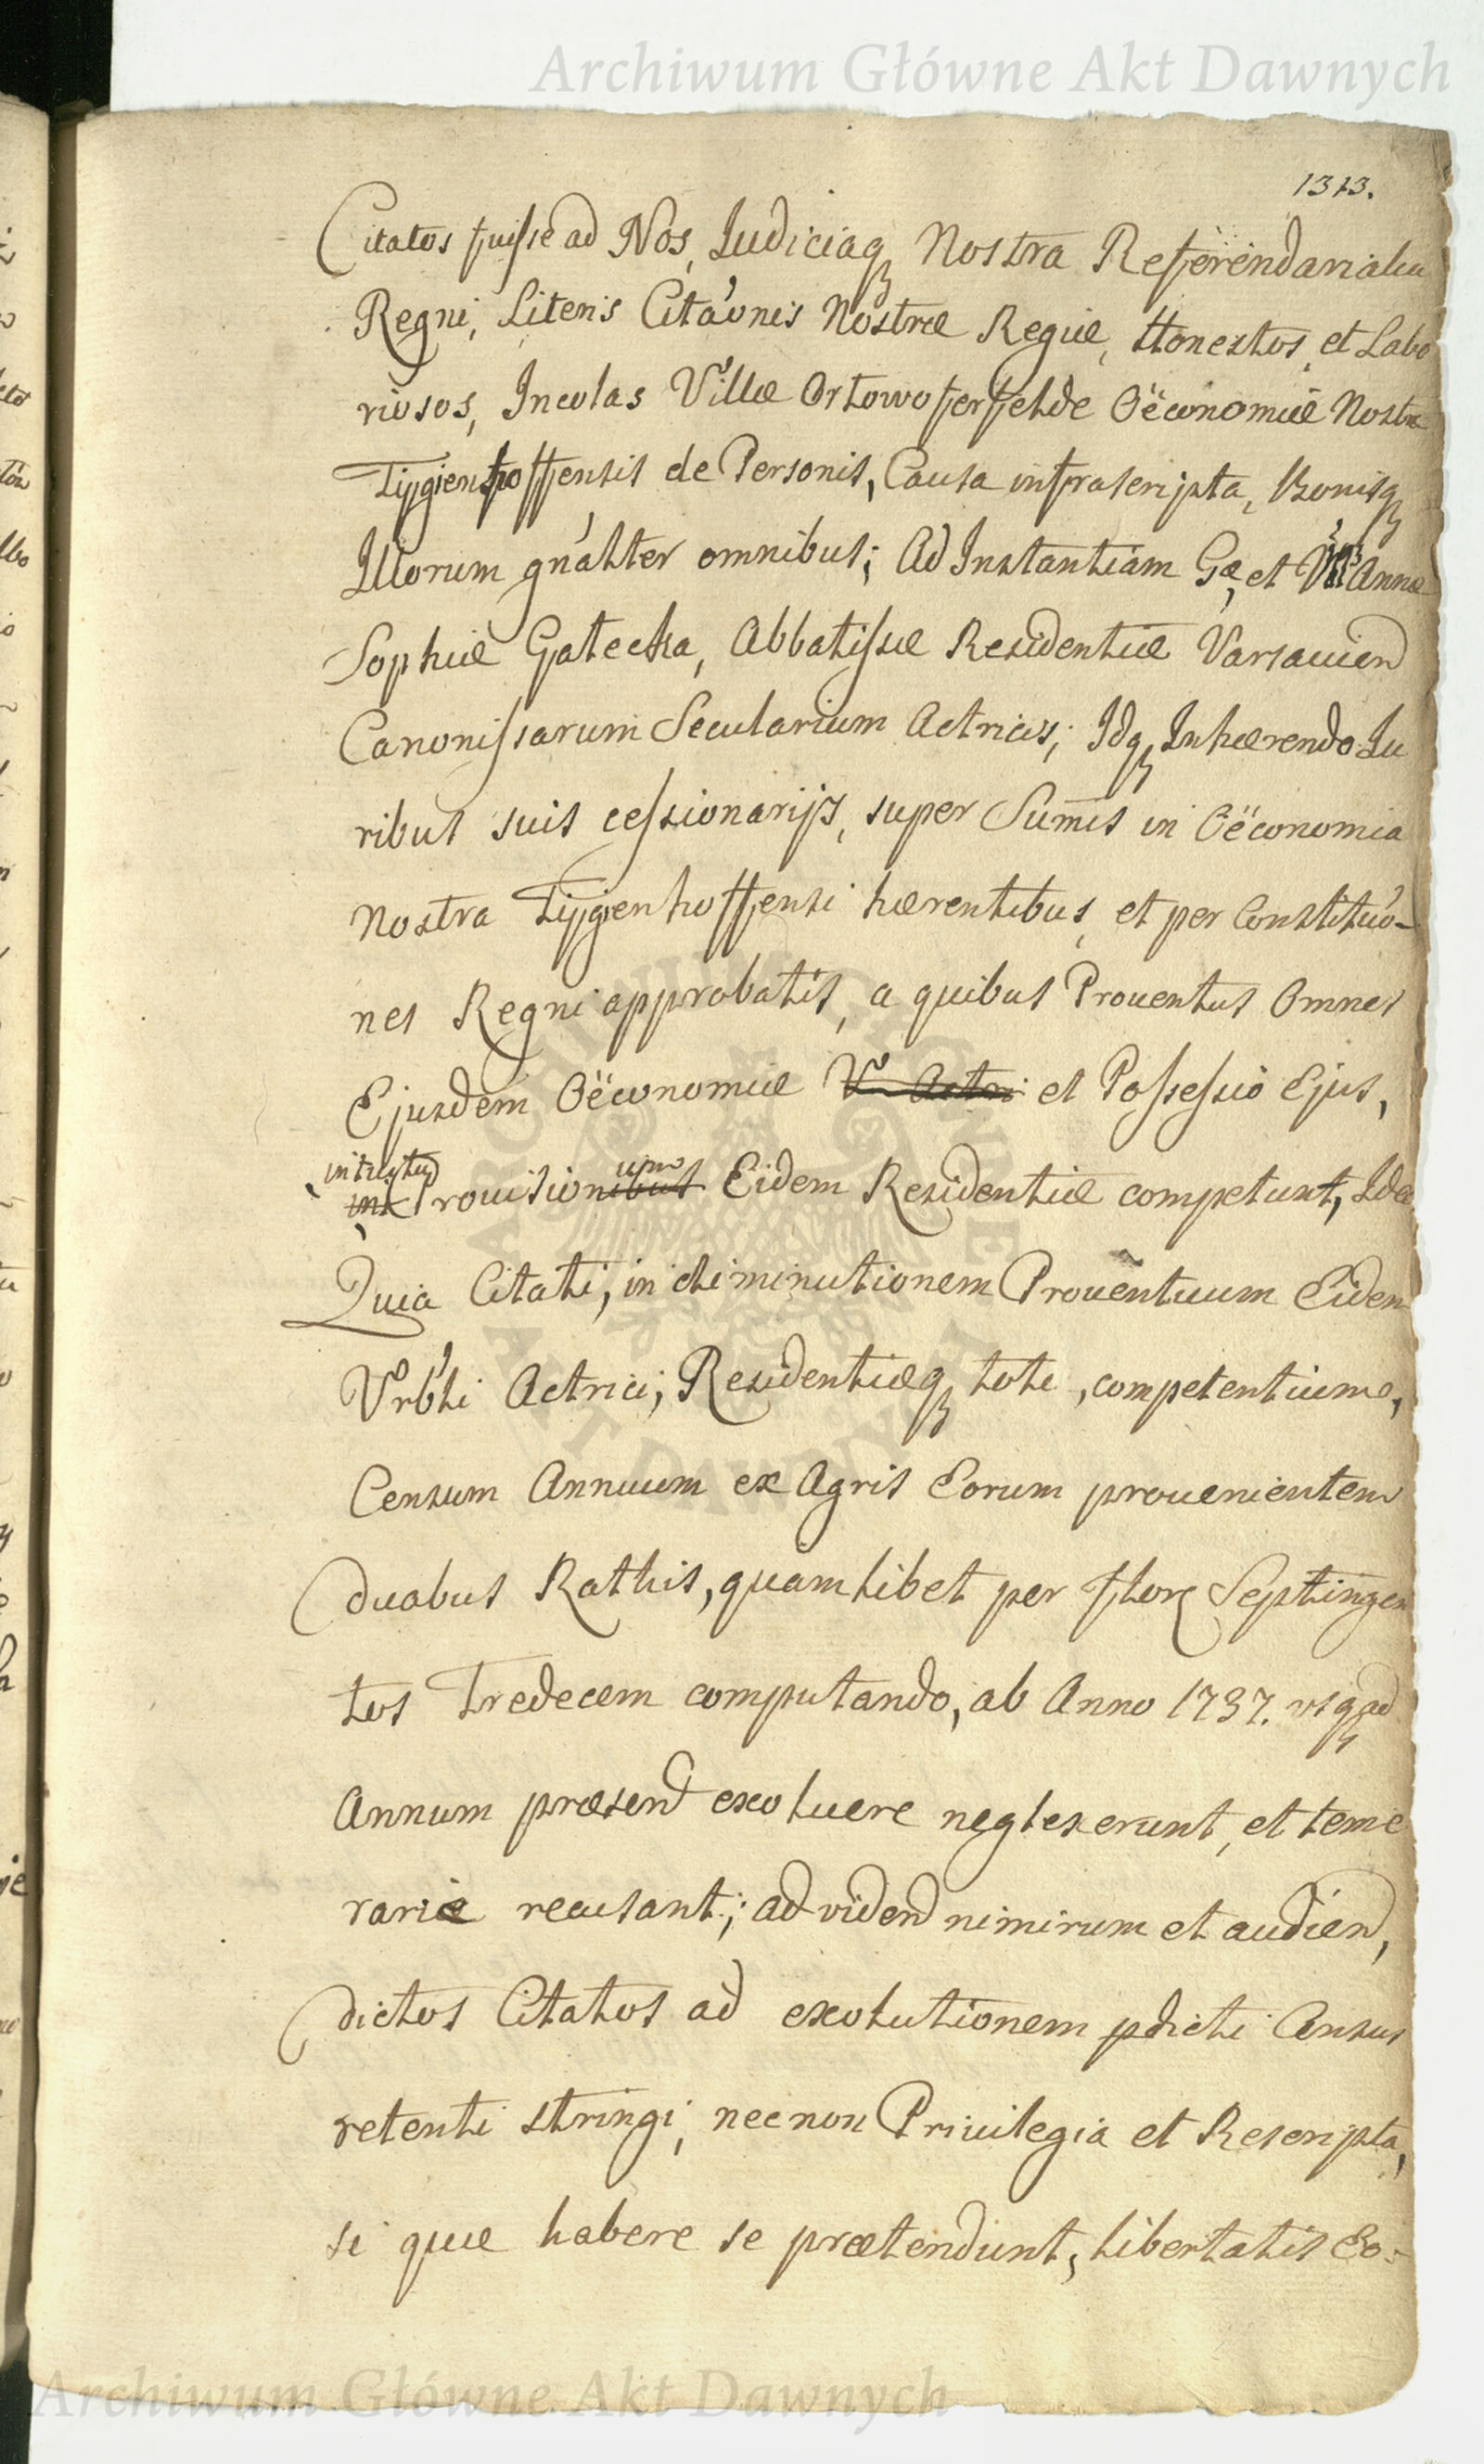 Archiwum Główne Akt Dawnych
1313.
Citatos fuisse ad Nos, Judiciaq Nostra Referendarialia
Regni, Literis Citaónis Nostræ Regiæ, Honestos, et Labo
riosos, Incolas Villæ Orłowoferfelde Oëconomiæ Nostræ
Tygienhoffensis de Personis, Causa infrascripta, Bonisq
Illorum gnáliter omnibus; Ad Instantiam Gæ, et Annæ
Sophiæ Gałecka, Abbatissæ Residentiæ Varsavien
Canonissarum Secularium Actricis; Idq Inhærendo Ju
ribus suis cessionarijs, super Summis in Oëconomia
Nostra Tygienhoffensi hærentibus, et per Constituó-
nes Regni approbatis, a quibus Proventus Omnes
Ejusdem Oëconomiæ V Actri et Possessio Ejus,
intuitu upm
int Provisionibus Eidem Residentiæ competunt, Ideo
Quia Citati, in diminutionem Proventuum Eidem
Vrbíli Actrici, Residentiæq toti, competentium,
Censum Annuum ex Agris Eorum provenientem
duabus Rathis, quamlibet per flor Septingen
tos Tredecem computando, ab Anno 1737. usq ad
Annum præsend exoluere neglexerunt, et teme
rarie recusant; ad vidend nimirum et audien,
dictos Citatos ad exolutionem pdicti Census
retenti stringi, necnon Privilegia et Rescripta,
si quæ habere se prætendunt, libertatis Eo-
Archiwum Główne Akt Dawnych